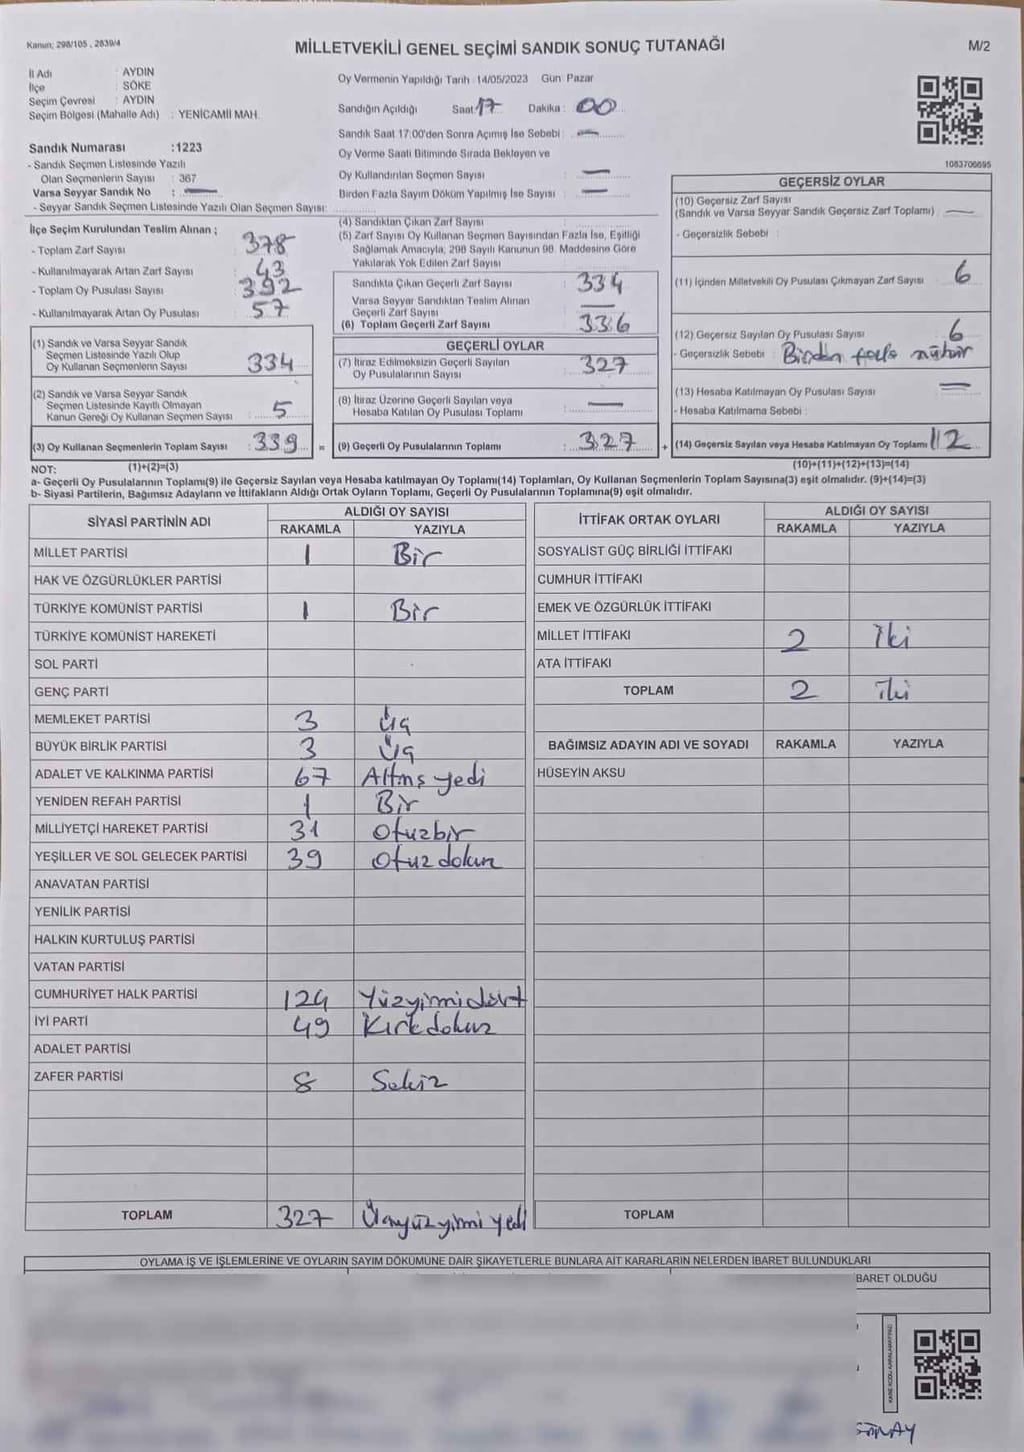 Kanun; 298/105 , 2839/4
MİLLETVEKİLİ GENEL SEÇİMİ SANDIK SONUÇ TUTANAĞI
M/2
İl Adı : AYDIN
İlçe : SÖKE
Seçim Çevresi : AYDIN
Seçim Bölgesi (Mahalle Adı) : YENİCAMİİ MAH.
Oy Vermenin Yapıldığı Tarih : 14/05/2023 Gün Pazar
Sandığın Açıldığı Saat 17 Dakika : 00
Sandık Saat 17:00'den Sonra Açımış İse Sebebi : —
Oy Verme Saati Bitiminde Sırada Bekleyen ve
Oy Kullandırılan Seçmen Sayısı : —
Birden Fazla Sayım Döküm Yapılmış İse Sayısı : —
Sandık Numarası :1223
- Sandık Seçmen Listesinde Yazılı
Olan Seçmenlerin Sayısı : 367
Varsa Seyyar Sandık No : —
- Seyyar Sandık Seçmen Listesinde Yazılı Olan Seçmen Sayısı:
1083706695
İlçe Seçim Kurulundan Teslim Alınan ;
- Toplam Zarf Sayısı : 378
- Kullanılmayarak Artan Zarf Sayısı : 43
- Toplam Oy Pusulası Sayısı : 392
- Kullanılmayarak Artan Oy Pusulası : 57
(1) Sandık ve Varsa Seyyar Sandık
Seçmen Listesinde Yazılı Olup
Oy Kullanan Seçmenlerin Sayısı : 334
(2) Sandık ve Varsa Seyyar Sandık
Seçmen Listesinde Kayıtlı Olmayan
Kanun Gereği Oy Kullanan Seçmen Sayısı : 5
(3) Oy Kullanan Seçmenlerin Toplam Sayısı : 339 =
(4) Sandıktan Çıkan Zarf Sayısı :
(5) Zarf Sayısı Oy Kullanan Seçmen Sayısından Fazla İse, Eşitliği
Sağlamak Amacıyla, 298 Sayılı Kanunun 98. Maddesine Göre
Yakılarak Yok Edilen Zarf Sayısı :
Sandıkta Çıkan Geçerli Zarf Sayısı : 334
Varsa Seyyar Sandıktan Teslim Alınan
Geçerli Zarf Sayısı : —
(6) Toplam Geçerli Zarf Sayısı : 336
GEÇERLİ OYLAR
(7) İtiraz Edilmeksizin Geçerli Sayılan
Oy Pusulalarının Sayısı : 327
(8) İtiraz Üzerine Geçerli Sayılan veya
Hesaba Katılan Oy Pusulası Toplamı : —
(9) Geçerli Oy Pusulalarının Toplamı : 327 +
GEÇERSİZ OYLAR
(10) Geçersiz Zarf Sayısı
(Sandık ve Varsa Seyyar Sandık Geçersiz Zarf Toplamı) : —
- Geçersizlik Sebebi :
(11) İçinden Milletvekili Oy Pusulası Çıkmayan Zarf Sayısı : 6
(12) Geçersiz Sayılan Oy Pusulası Sayısı : 6
- Geçersizlik Sebebi : Birden fazla mühür
(13) Hesaba Katılmayan Oy Pusulası Sayısı : —
- Hesaba Katılmama Sebebi :
(14) Geçersiz Sayılan veya Hesaba Katılmayan Oy Toplamı 12
NOT: (1)+(2)=(3)
(10)+(11)+(12)+(13)=(14)
a- Geçerli Oy Pusulalarının Toplamı(9) ile Geçersiz Sayılan veya Hesaba katılmayan Oy Toplamı(14) Toplamları, Oy Kullanan Seçmenlerin Toplam Sayısına(3) eşit olmalıdır. (9)+(14)=(3)
b- Siyasi Partilerin, Bağımsız Adayların ve İttifakların Aldığı Ortak Oyların Toplamı, Geçerli Oy Pusulalarının Toplamına(9) eşit olmalıdır.
SİYASİ PARTİNİN ADI ALDIĞI OY SAYISI
RAKAMLA YAZIYLA
MİLLET PARTİSİ 1 Bir
HAK VE ÖZGÜRLÜKLER PARTİSİ
TÜRKİYE KOMÜNİST PARTİSİ 1 Bir
TÜRKİYE KOMÜNİST HAREKETİ
SOL PARTİ
GENÇ PARTİ
MEMLEKET PARTİSİ 3 Üç
BÜYÜK BİRLİK PARTİSİ 3 Üç
ADALET VE KALKINMA PARTİSİ 67 Altmş yedi
YENİDEN REFAH PARTİSİ 1 Bir
MİLLİYETÇİ HAREKET PARTİSİ 31 Otuzbir
YEŞİLLER VE SOL GELECEK PARTİSİ 39 Otuz dokuz
ANAVATAN PARTİSİ
YENİLİK PARTİSİ
HALKIN KURTULUŞ PARTİSİ
VATAN PARTİSİ
CUMHURİYET HALK PARTİSİ 124 Yüzyirmidört
İYİ PARTİ 49 Kırkdokuz
ADALET PARTİSİ
ZAFER PARTİSİ 8 Sekiz
TOPLAM 327 Üçyüzyirmi yedi
İTTİFAK ORTAK OYLARI ALDIĞI OY SAYISI
RAKAMLA YAZIYLA
SOSYALİST GÜÇ BİRLİĞİ İTTİFAKI
CUMHUR İTTİFAKI
EMEK VE ÖZGÜRLÜK İTTİFAKI
MİLLET İTTİFAKI 2 İki
ATA İTTİFAKI
TOPLAM 2 İki
BAĞIMSIZ ADAYIN ADI VE SOYADI RAKAMLA YAZIYLA
HÜSEYİN AKSU
TOPLAM
OYLAMA İŞ VE İŞLEMLERİNE VE OYLARIN SAYIM DÖKÜMÜNE DAİR ŞİKAYETLERLE BUNLARA AİT KARARLARIN NELERDEN İBARET BULUNDUKLARI
BARET OLDUĞU
KARE KODU KARALAMAYINIZ